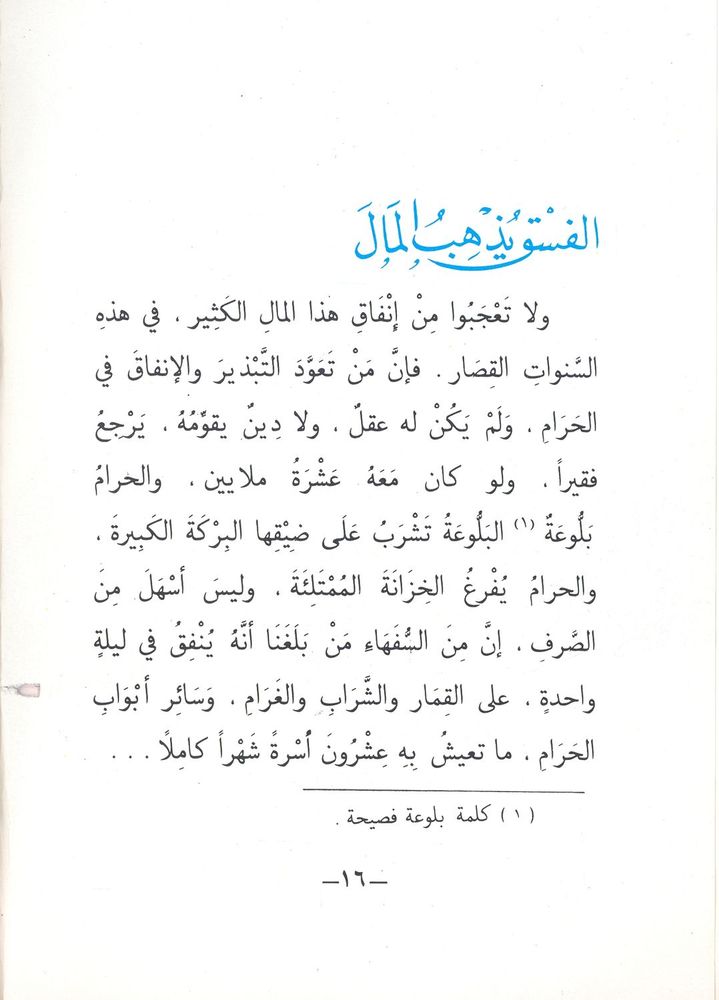 الفسْق يُذْهِبُ المَالَ
ولا تَعْجَبُوا مِنْ إِنْفَاقِ هذا المالِ الكَثِير ، في هذهِ
السَّنواتِ القِصَار . فإنَّ مَنْ تَعَوَّدَ التَّبْذيرَ والإنفاقَ في
الحَرَامِ ، وَلَمْ يَكُنْ له عقلٌ ، ولا دِينٌ يقوِّمُهُ ، يَرْجِعُ
فقيراً ، ولو كان مَعَهُ عَشْرَةُ ملايين ، والحرامُ
بَلُّوعَةٌ (١) البَلُّوعَةُ تَشْرَبُ عَلَى ضِيْقِها البِرْكَةَ الكَبِيرةَ ،
والحرامُ يُفْرِغُ الخِزَانَةَ المُمْتَلِئَةَ ، وليسَ أسْهَلَ مِنَ
الصَّرفِ ، إنَّ مِنَ السُّفَهَاءِ مَنْ بَلَغَنَا أنَّهُ يُنْفِقُ في ليلةٍ
واحدةٍ ، على القِمَار والشَّرَابِ والغَرَامِ ، وَسَائِر أبْوَابِ
الحَرَامِ ، ما تعيشُ بِهِ عِشْرُونَ أُسْرةً شَهْراً كامِلاً . . .
(١) كلمة بلوعة فصيحة .
–١٦–